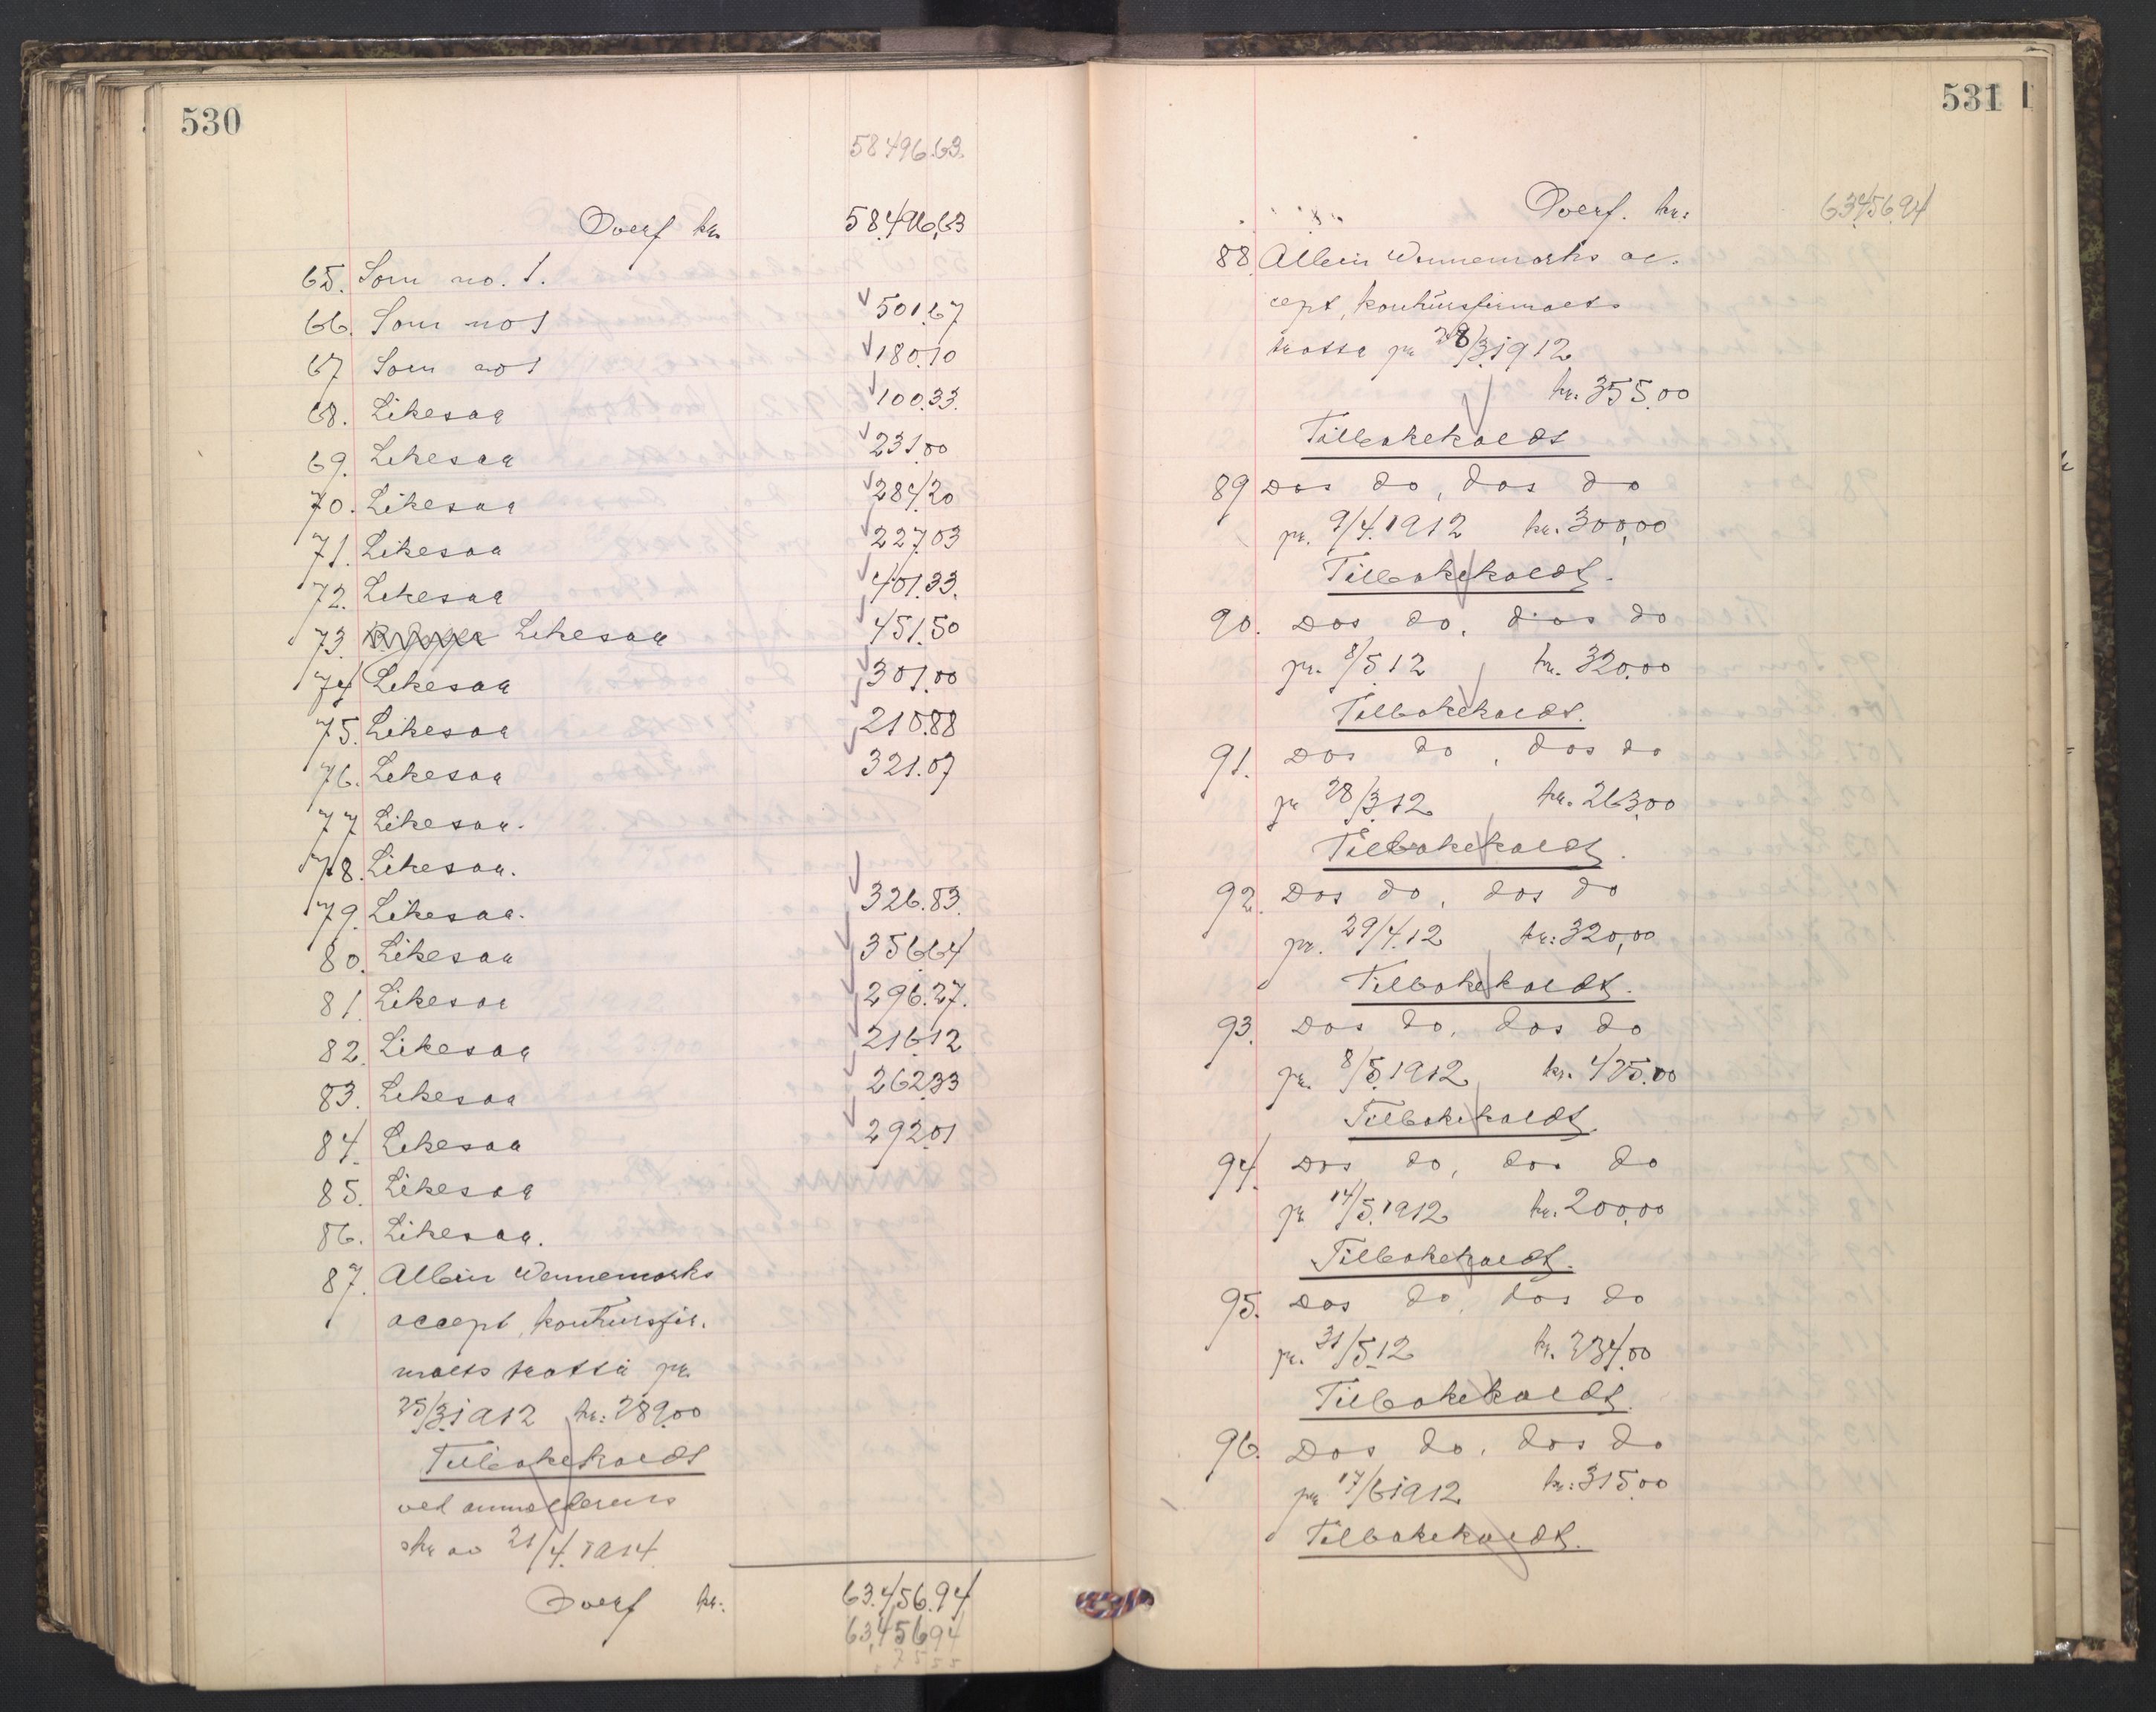 530
58496.63.
Overf kr. 58.496,63
65. Som no. 1.
66. Som no 1 501.67
67 Som no 1 180.10
68. Likesaa 100.33.
69. Likesaa 231.00
70. Likesaa 284.20
71. Likesaa 227.03
72. Likesaa 401.33.
73. Likesaa 451.50
74 Likesaa 301.00
75. Likesaa 210.88
76. Likesaa 321.07
77 Likesaa.
78. Likesaa.
79. Likesaa. 326.83.
80. Likesaa 356.64
81. Likesaa 296.27.
82. Likesaa 216.12
83. Likesaa 262.33
84. Likesaa 292.01
85. Likesaa
86. Likesaa.
87. Albin Wennemarks
accept, konkursfir.
maets tratta pr.
25/3.1912 kr: 289.00
Tilbakekaldt
ved anmelderens
skr av 21/4.1914.
Overf kr: 63.456.94
63.456.94
531
Overf. kr: 63456.94
88 Albin Wennemarks ac.
cept, konkursfirmaets
tratta pr 28/3.1912
kr. 355.00
Tilbakekaldt
89 Das do, das do
pr. 9/4.1912 kr. 300,00
Tilbakekaldt.
90. Das do, das do
pr. 8/5.12 kr. 320.00
Tilbakekaldt.
91. Das do, das do
pr 28/3.12 kr. 263,00
Tilbakekaldt.
92. Das do, das do
pr. 29/4.12 kr: 320,00
Tilbakekaldt.
93. Das do, das do
pr. 8/5.1912 kr. 425.00
Tilbakekaldt.
94. Das do, das do
pr 14/5.1912 kr. 200,00
Tilbakekaldt.
95. Das do, das do
pr. 31/5.12 kr. 234.00
Tilbakekaldt.
96. Das do, das do
pr 17/6 1912 kr: 315.00
Tilbakekaldt.